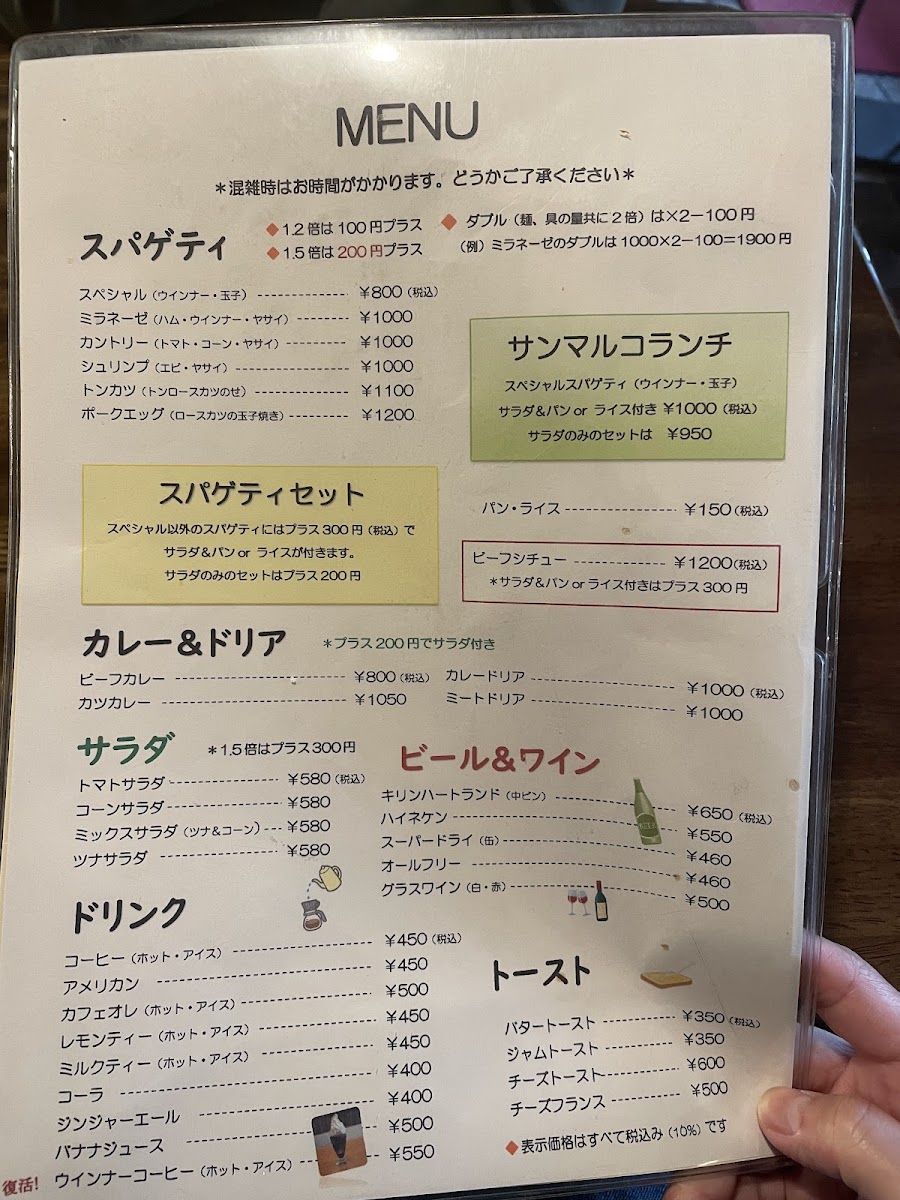 MENU
＊混雑時はお時間がかかります。どうかご了承ください＊
スパゲティ
◆1.2倍は100円プラス
◆1.5倍は200円プラス
◆ダブル（麺、具の量共に2倍）は×2－100円
（例）ミラネーゼのダブルは1000×2－100＝1900円
スペシャル（ウインナー・玉子） ---------- ￥800（税込）
ミラネーゼ（ハム・ウインナー・ヤサイ） ------ ￥1000
カントリー（トマト・コーン・ヤサイ） ------- ￥1000
シュリンプ（エビ・ヤサイ） ------------- ￥1000
トンカツ（トンロースカツのせ） ---------- ￥1100
ポークエッグ（ロースカツの玉子焼き） ------- ￥1200
サンマルコランチ
スペシャルスパゲティ（ウインナー・玉子）
サラダ＆パン or ライス付き ￥1000（税込）
サラダのみのセットは ￥950
スパゲティセット
スペシャル以外のスパゲティにはプラス300円（税込）で
サラダ＆パン or ライスが付きます。
サラダのみのセットはプラス200円
パン・ライス --------------- ￥150（税込）
ビーフシチュー ------------ ￥1200（税込）
＊サラダ＆パン or ライス付きはプラス300円
カレー＆ドリア ＊プラス200円でサラダ付き
ビーフカレー ------------------- ￥800（税込）
カツカレー --------------------- ￥1050
カレードリア ---------------- ￥1000（税込）
ミートドリア ---------------- ￥1000
サラダ ＊1.5倍はプラス300円
トマトサラダ ------------ ￥580（税込）
コーンサラダ ------------ ￥580
ミックスサラダ（ツナ＆コーン） --- ￥580
ツナサラダ ------------- ￥580
ビール＆ワイン
キリンハートランド（中ビン） ------------ ￥650（税込）
ハイネケン --------------------- ￥550
スーパードライ（缶） ----------------- ￥460
オールフリー -------------------- ￥460
グラスワイン（白・赤） ---------------- ￥500
BEER
ドリンク
コーヒー（ホット・アイス） -------------- ￥450（税込）
アメリカン --------------------- ￥450
カフェオレ（ホット・アイス） ------------- ￥500
レモンティー（ホット・アイス） ------------ ￥450
ミルクティー（ホット・アイス） ------------ ￥450
コーラ ----------------------- ￥400
ジンジャーエール ------------------ ￥400
バナナジュース ------------------- ￥500
復活! ウインナーコーヒー（ホット・アイス） ------- ￥550
トースト
バタートースト --------- ￥350（税込）
ジャムトースト --------- ￥350
チーズトースト --------- ￥600
チーズフランス --------- ￥500
◆表示価格はすべて税込み（10%）です